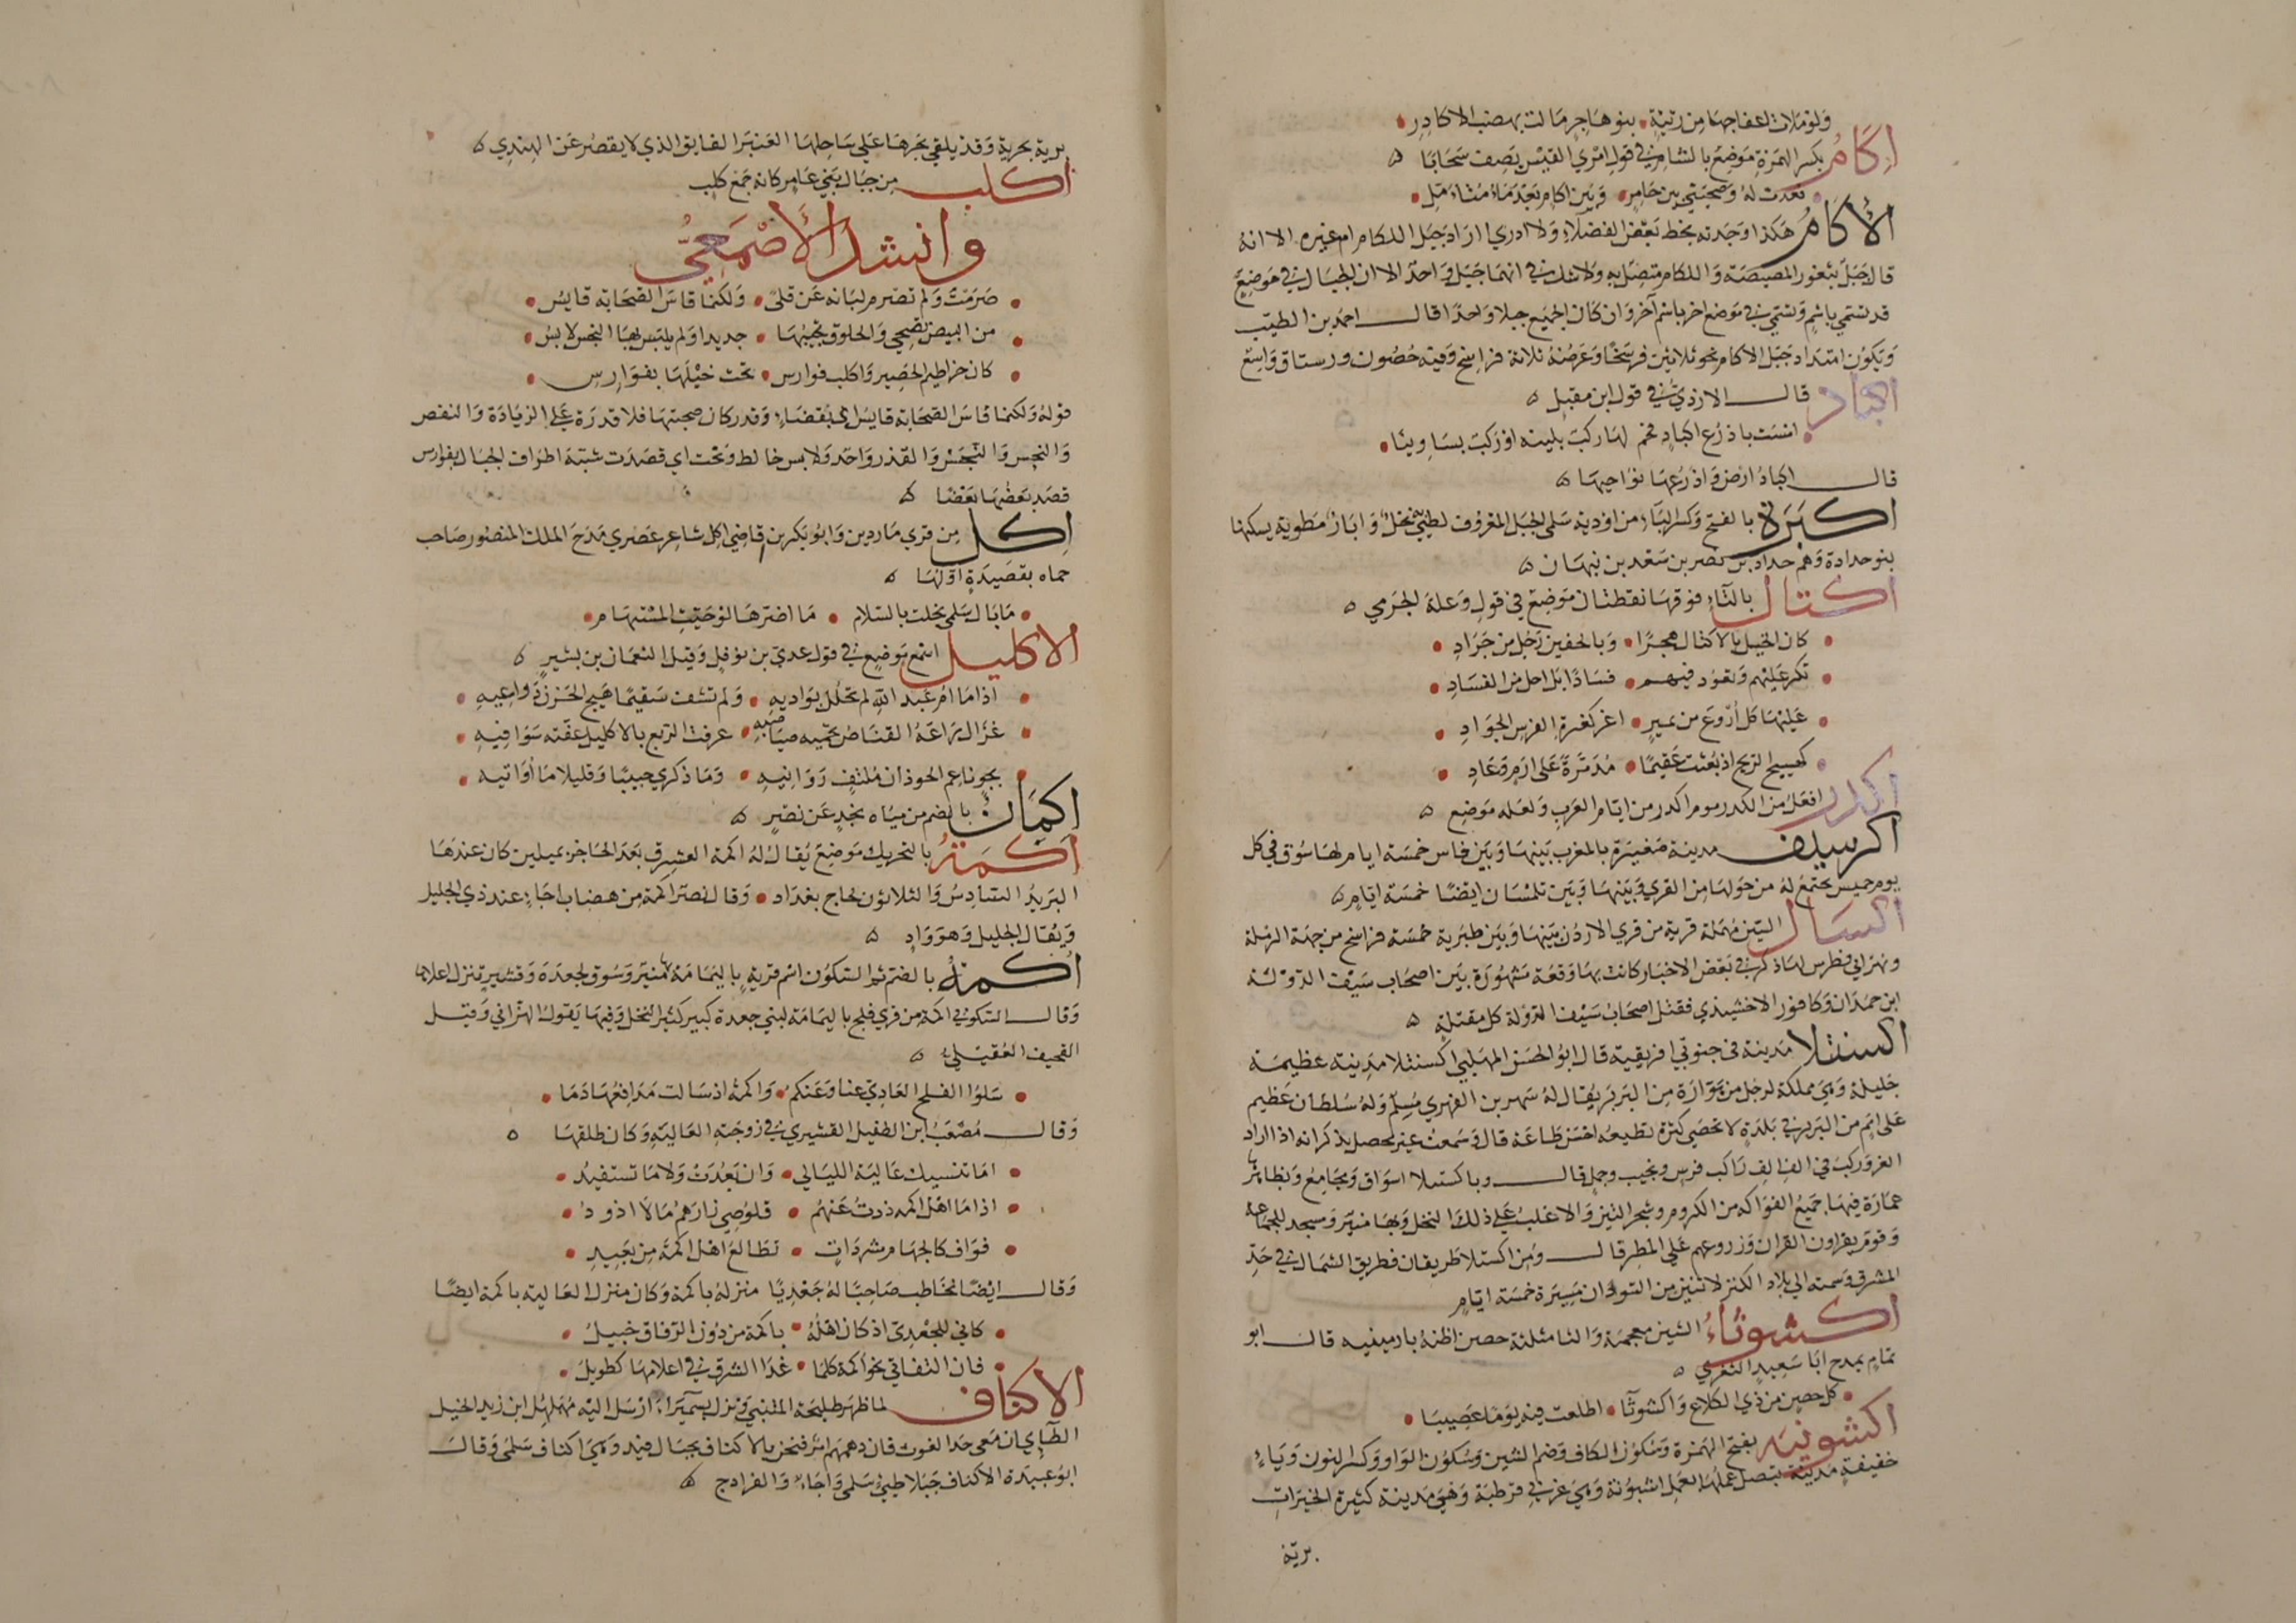 ولو ملات اعفاجها من رثية بنو هاجر مالت بهضب الاكادر
إكام بكسر الهمزة موضع بالشام في قول امرئ القيس يصف سحابا
قعدت له وصحبتي بين حامر وبين اكام بعد ما متامل
الأكام هكذا وجدته بخط بعض الفضلاء ولا ادري اراد جبل اللكام ام غيره الا انه
قال جبل بثغور المصيصة واللكام متصل به ولا شك في انهما جبل واحد الا ان الجبال في موضع
قد تسمى باسم وتسمى في موضع اخر باسم آخر وان كان الجميع جبلا واحدا قال احمد بن الطيب
ويكون امتداد جبل الاكام نحو ثلاثين فرسخا وعرضه ثلاثة فراسخ وفيه حصون ورستاق واسع
اكباد قال الازدي في قول ابن مقبل
امست باذرع اكباد فحم لها ركب بلينة او ركب بساوينا
قال اكباد ارض واذرعها نواحيها
اكبرة بالفتح وكسر الباء من اودية سلمى الجبل المعروف لطيئ به نخل وابار مطوية يسكنها
بنو حدادة وهم حداد بن نصر بن سعد بن نبهان
اكتال بالتاء فوقها نقطتان موضع في قول وعلة الجرمي
كان الخيل بالاكتال هجرا وبالخفين رجل من جراد
تكر عليهم وتعود فيهم فسادا بل اجل من الفساد
عليها كل أروع من نمير اغر كغرة الفرس الجواد
كهييج الريح اذ بعثت عقيما مدمرة على ارم وعاد
اكدر افعل من الكدر يوم اكدر من ايام العرب ولعله موضع
اكرسيف مدينة صغيرة بالمغرب بينها وبين فاس خمسة ايام لها سوق في كل
يوم خميس يجتمع له من حولها من القرى وبينها وبين تلمسان ايضا خمسة ايام
اكسال السين مهملة قرية من قرى الاردن بينها وبين طبرية خمسة فراسخ من جهة الرملة
ونهر ابي فطرس لها ذكر في بعض الاخبار كانت بها وقعة مشهورة بين اصحاب سيف الدولة
ابن حمدان وكافور الاخشيدي فقتل اصحاب سيف الدولة كل مقتلة
اكسنتلا مدينة في جنوبي افريقية قال ابو الحسن المهلبي اكسنتلا مدينة عظيمة
جليلة وهي مملكة لرجل من هوارة من البربر يقال له سهر بن الفهري مسلم وله سلطان عظيم
على امم من البربر في بلدة لا تحصى كثرة تطيعه احسن طاعة قال وسمعت غير محصل يذكر انه اذا اراد
الغزو ركب في الف الف راكب فرس ونجيب وجمل قال وباكسنلا اسواق ومجامع وبظاهرها
عمارة فيها جميع الفواكه من الكروم وشجر التين والاغلب على ذلك النخل وبها منبر ومسجد للجماعة
وقوم يقراون القران وزروعهم على المطر قال ومن اكسنلا طريقان فطريق الشمال في حد
المشرق وسمته الى بلاد الكنز لا تنين من السودان مسيرة خمسة ايام
اكشوثاء الشين معجمة والثا مثلثة حصن اظنه بارمينيه قال ابو
تمام يمدح ابا سعيد الثغري
كل حصن من ذي الكلاع واكشوثا اطلعت فيه يوما عصيبا
اكشونية بفتح الهمزة وسكون الكاف وضم الشين وسكون الواو وكسر النون وياء
خفيفة مدينة يتصل عملها بعمل اشبونة وهي غربي قرطبة وهي مدينة كثيرة الخيرات
برية
برية بحرية وقد يلقي بحرها على ساحلها العنبر الفايق الذي لا يقصر عن الهندي
أكلب من جبال بني عامر كانه جمع كلب
وانشد الأصمعي
صرمت ولم تصرم لبانه عن قلى ولكنما قاس الصحابة قايس
من البيض تضحي والخلوق بجيبها جديدا ولم يلبس بها النجس لابس
كان خراطيم الحصير واكلب فوارس نحت خيلها بفوارس
قوله ولكنما قاس الصحابة قايس اي بقضاء وقدر كان صحبتها فلا قدرة على الزيادة والنقص
والنجس والنجس والقذر واحد ولابس خالط ونحت اي قصدت شبه اطراف الجبال بفوارس
قصد بعضها بعضا
إكل من قرى ماردين وابو بكر بن قاضي اكل شاعر عصري مدح الملك المنصور صاحب
حماه بقصيدة اولها
ما بال سلمى بخلت بالسلام ما اضرها لو حيت المستهام
الاكليل اسم موضع في قول عدي بن نوفل وقيل النعمان بن بشير
اذا ما ام عبد الله لم تحلل بواديه ولم تشف سقيما هيج الحزن دواعيه
غزال راعه القناص تحميه صياصيه عرفت الربع بالاكليل عفته سوافيه
بجو ناعم الحوذان ملتف روابيه وما ذكري حبيبا وقليلا ما أواتيه
اكمان بالضم من مياه نجد عن نصر
أكمة بالتحريك موضع يقال له اكمة العشرق بعد الحاجر بميلين كان عندها
البريد السادس والثلاثون لحاج بغداد وقال نصر اكمة من هضاب اجاء عند ذي الجليل
ويقال الجليل وهو واد
أكمة بالضم ثم السكون اسم قرية باليمامة بها منبر وسوق لجعدة وقشير تنزل اعلاها
وقال السكوني اكمة من قرى فلج باليمامة لبني جعدة كبير كثير النخل وفيها يقول الهزاني وقيل
القحيف العقيلي
سلوا الفلج العادي عنا وعنكم واكمة اذ سالت مدافعها دما
وقال مصعب ابن الطفيل القشيري في زوجته العالية وكان طلقها
اما تنسيك عالية الليالي وان بعدت ولا ما تستفيد
اذا ما اهل اكمة ذدت عنهم قلوصي ذادهم ما لا اذود
قواف كالجهام مشردات تطالع اهل اكمة من بعيد
وقال ايضا يخاطب صاحبا له جعديا منزله باكمة وكان منزل العالية باكمة ايضا
كاني للجعدي اذ كان اهله باكمة من دون الرفاق خليل
فان التفاتي نحو اكمة كلما غدا الشرق في اعلامها لطويل
الاكناف لما ظهر طليحة المتنبي ونزل بسميراء ارسل اليه مهلهل ابن زيد الخيل
الطاي ان معي حدا لغوث فان دهمهم امر فنحن بالاكناف بجبال فيد وهي اكناف سلمى وقال
ابو عبيدة الاكناف جبلا طيئ سلمى واجاء والفرادج